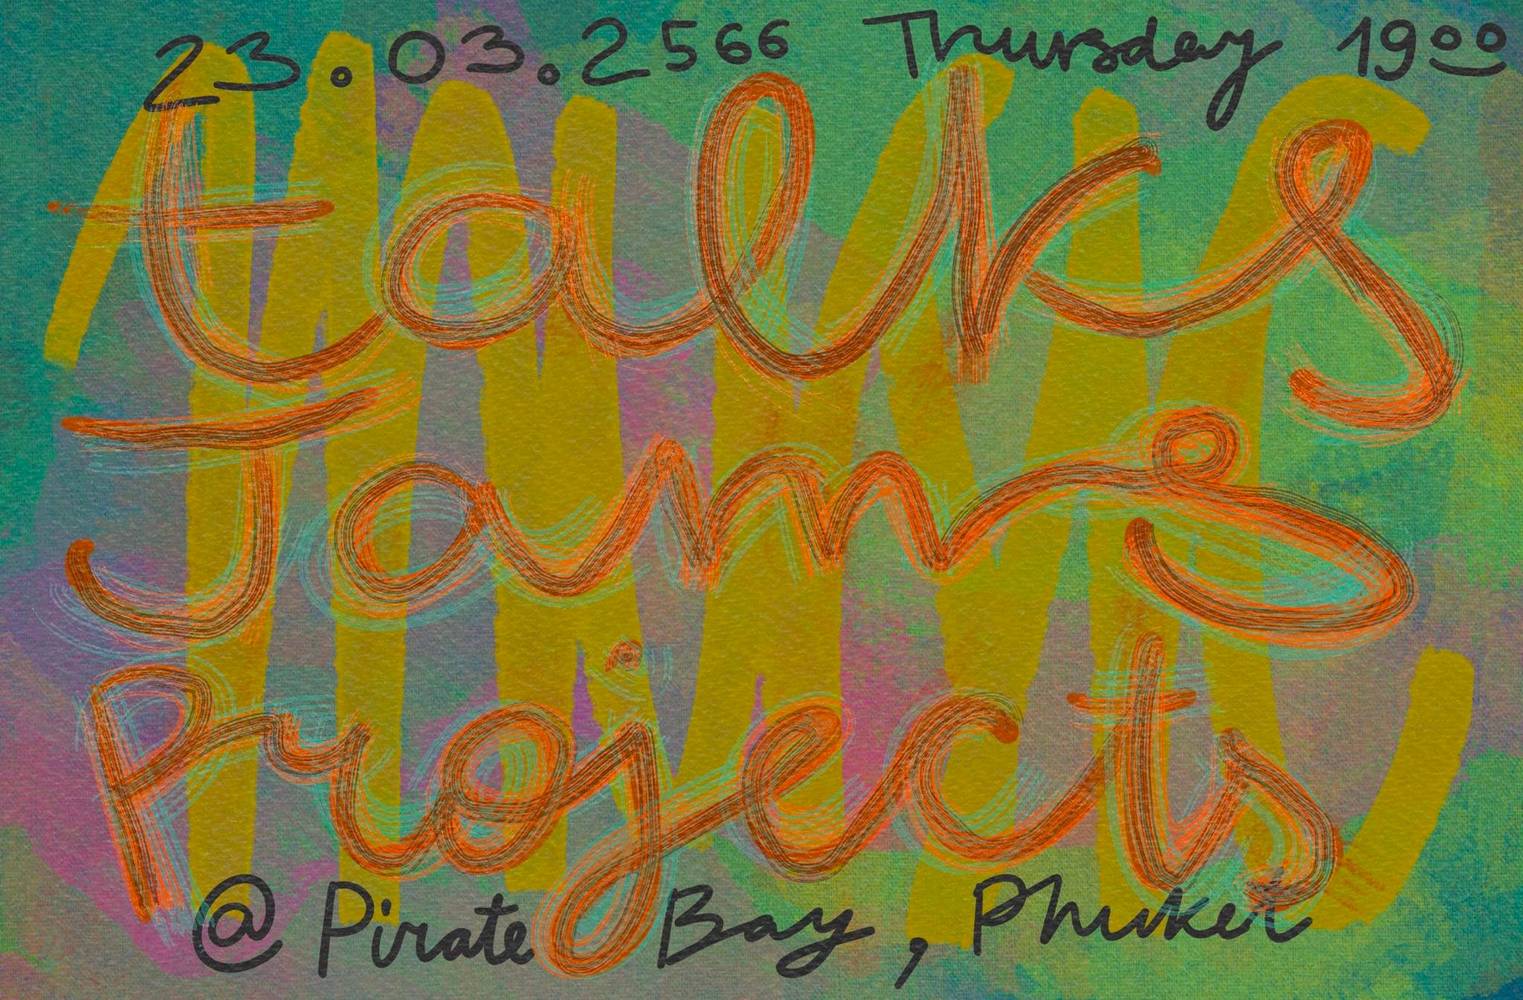 23.03.2566 Thursday 19⁰⁰
talks
Jams
Projects
@ Pirate Bay, Phuket